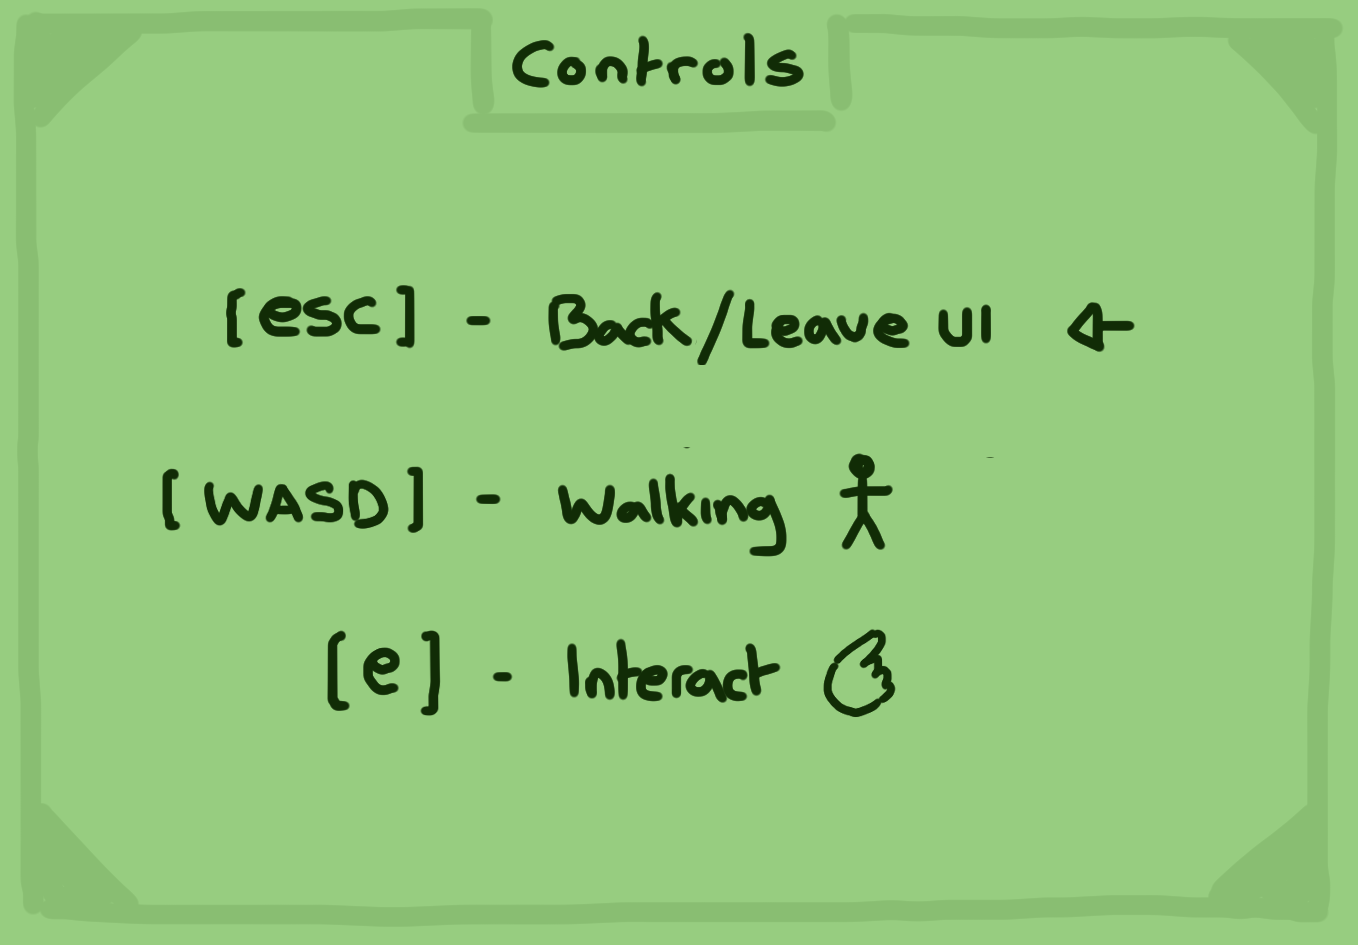 Controls
[esc] - Back/Leave UI
[WASD] - Walking
[e] - Interact